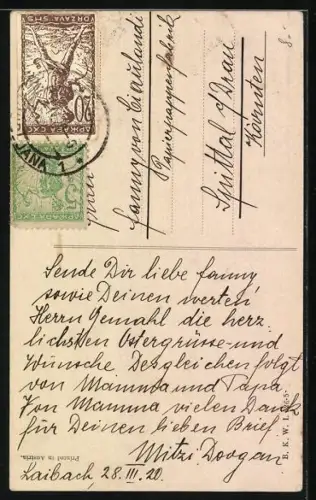 Sende Dir liebe Fanny
sowie Deinen werten
Herrn Gemahl die herz
lichsten Ostergrüsse und
Wünsche. Desgleichen folgt
von Mamma und Papa
Von Mamma vielen Dank
für Deinen lieben Brief.
Mitzi
Laibach, 28. III. 20.
Frau
Fanny von
Papierpappenfabrik
Spittal a/Drau
Kärnten
8.-
DRŽAVA SHS
20
ДРЖАВА СХС
JANA 1
5
Printed in Austria.
B. K. W. I.